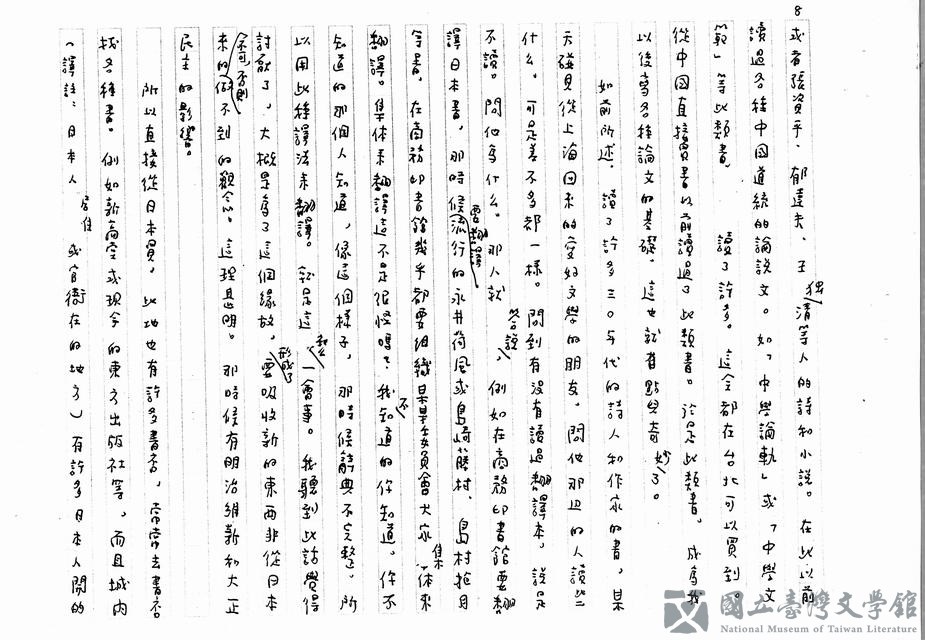 8
或者張資平、郁達夫、王獨清等人的詩和小說。在此以前
讀過各種中國道統的論說文。如「中學論軌」或「中學文
範」等此類書。讀了許多。這全都在台北可以買到。
從中國直接買書以前讀過了此類書。於是此類書，成為我
以後寫各種論文的基礎。這也就有點兒奇妙了。
如前所述，讀了許多三〇年代的詩人和作家的書，某
天碰見從上海回來的愛好文學的朋友，問他那邊的人讀些
什么。可是差不多都一樣。問到有沒有讀過翻譯本，說是
不讀。問他為什么。那人就答說，例如在商務印書館要翻
譯日本書，那時候要翻譯流行的永井荷風或島崎藤村、島村抱月
等書，在商務印書館幾乎都要組織某某委員會大家集体來
翻譯。集体來翻譯這不是很怪嗎？我知道的你不知道，你不
知道的那個人知道，像這個樣子，那時候辭典不完整，所
以用此種譯法來翻譯。就是這么一會事。我聽到此話覺得
討厭了，大概是為了這個緣故，形成了要吸收新的東西非從日本
來的不可否則做不到的觀念。這理想明。那時候有明治維新和大正
民主的影響。
所以直接從日本買，此地也有許多書店，常常去書店
找各種書。例如新高堂或現今的東方出版社等，而且城內
（譯註：日本人居住或官衙在的地方）有許多日本人開的
國立臺灣文學館
National Museum of Taiwan Literature